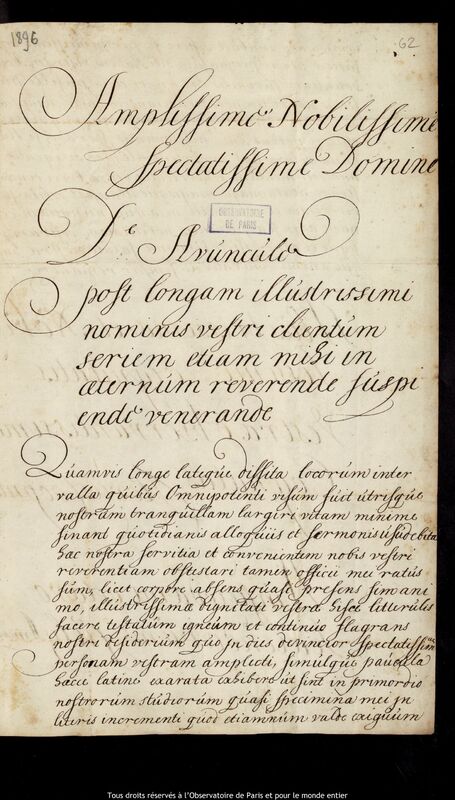 1896
62
Amplissime Nobilissime
Spectatissime Domine
OBSERVATOIRE
DE PARIS
De Avunculo
post longam illustrissimi
nominis vestri clientum
seriem etiam mihi in
æternum reverende suspi
ende venerande
Quamvis longe lateque dissita locorum inter
valla quibus Omnipotenti visum fuit utrisque
nostrum tranquillam largiri vitam minime
sinant quotidianis alloquiis et sermonis usu debita
hac nostra servitia et convenientem nobis vestri
reverentiam obtestari tamen officii mei ratus
sum, licet corpore absens quasi presens sim ani
mo, illustrissimæ dignitati vestræ hisce litterulis
facere testatum igneum et continuo flagrans
nostri desiderium quo in dies devincior spectatissimam
personam vestram amplecti, simulque paucula
hæcce latine exarata exhibere ut sint in primordio
nostrorum studiorum quasi specimina mei in
litteris incrementi quod etiamnum valde exiguum
Tous droits réservés à l'Observatoire de Paris et pour le monde entier